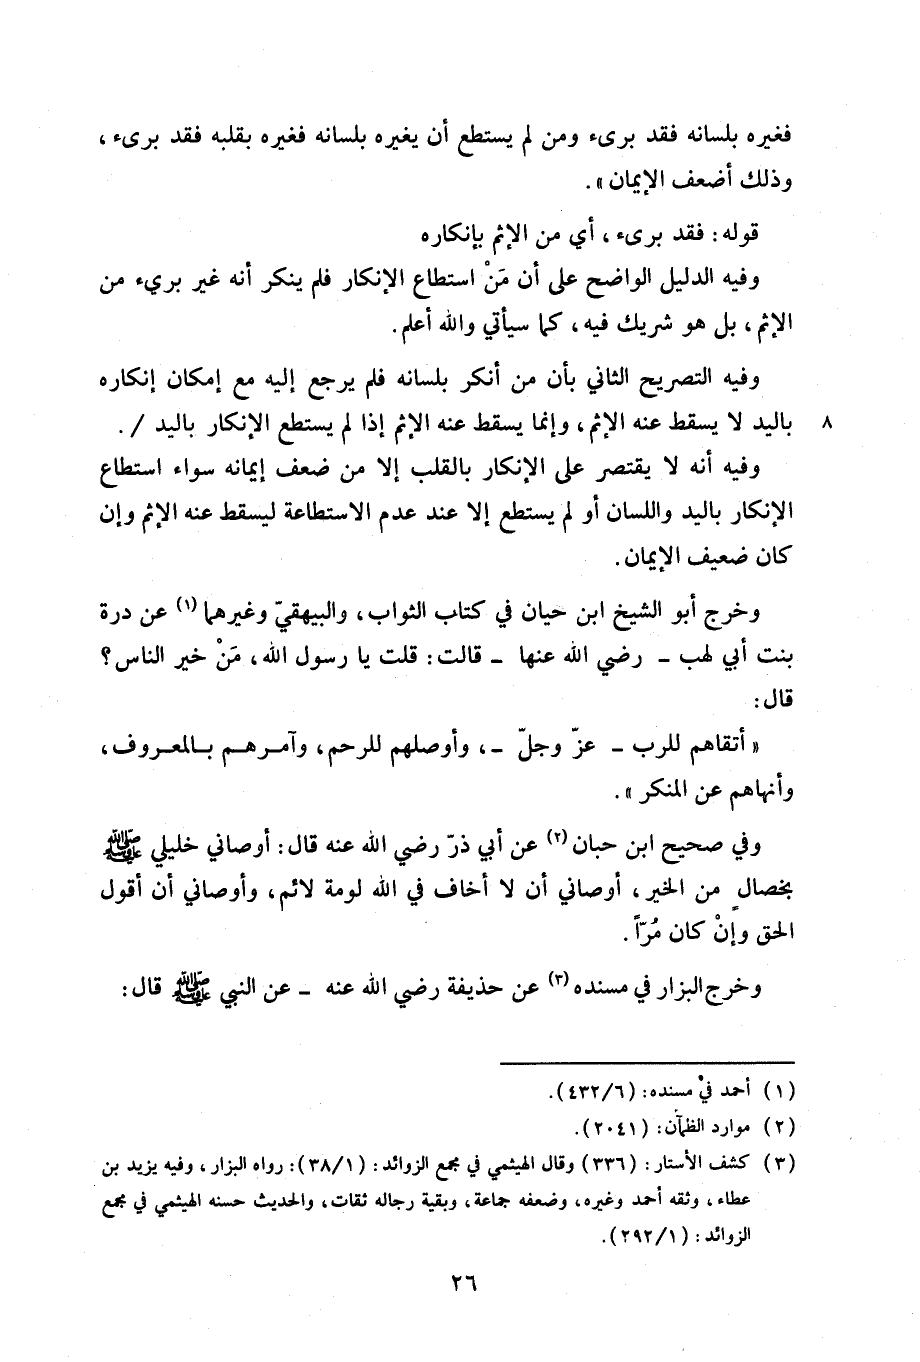 فغيره بلسانه فقد برىء ومن لم يستطع أن يغيره بلسانه فغيره بقلبه فقد برىء ،
وذلك أضعف الإيمان » .
قوله : فقد برىء ، أي من الإثم بإنكاره
وفيه الدليل الواضح على أن مَنْ استطاع الإنكار فلم ينكر أنه غير بريء من
الإثم ، بل هو شريك فيه ، كما سيأتي والله أعلم .
وفيه التصريح الثاني بأن من أنكر بلسانه فلم يرجع إليه مع إمكان إنكاره
باليد لا يسقط عنه الإثم ، وإنما يسقط عنه الإثم إذا لم يستطع الإنكار باليد / . ٨
وفيه أنه لا يقتصر على الإنكار بالقلب إلا من ضعف إيمانه سواء استطاع
الإنكار باليد واللسان أو لم يستطع إلا عند عدم الاستطاعة ليسقط عنه الإثم وإن
كان ضعيف الإيمان .
وخرج أبو الشيخ ابن حيان في كتاب الثواب ، والبيهقيّ وغيرهما (١) عن درة
بنت أبي لهب ـ رضي الله عنها ـ قالت : قلت يا رسول الله ، مَنْ خير الناس ؟
قال :
« أتقاهم للرب ـ عزّ وجلّ ـ ، وأوصلهم للرحم ، وآمـرهـم بـالمعـروف ،
وأنهاهم عن المنكر » .
وفي صحيح ابن حبان (٢) عن أبي ذرّ رضي الله عنه قال : أوصاني خليلي ﷺ
بخصالٍ من الخير ، أوصاني أن لا أخاف في الله لومة لائم ، وأوصاني أن أقول
الحق وإنْ كان مُرّاً .
وخرج البزار في مسنده (٣) عن حذيفة رضي الله عنه ـ عن النبي ﷺ قال :
(١) أحمد في مسنده : (٤٣٢/٦) .
(٢) موارد الظمآن : (٢٠٤١) .
(٣) كشف الأستار : (٣٣٦) وقال الهيثمي في مجمع الزوائد : (٣٨/١) : رواه البزار ، وفيه يزيد بن
عطاء ، وثقه أحمد وغيره ، وضعفه جماعة ، وبقية رجاله ثقات ، والحديث حسنه الهيثمي في مجمع
الزوائد : (٢٩٢/١) .
٢٦